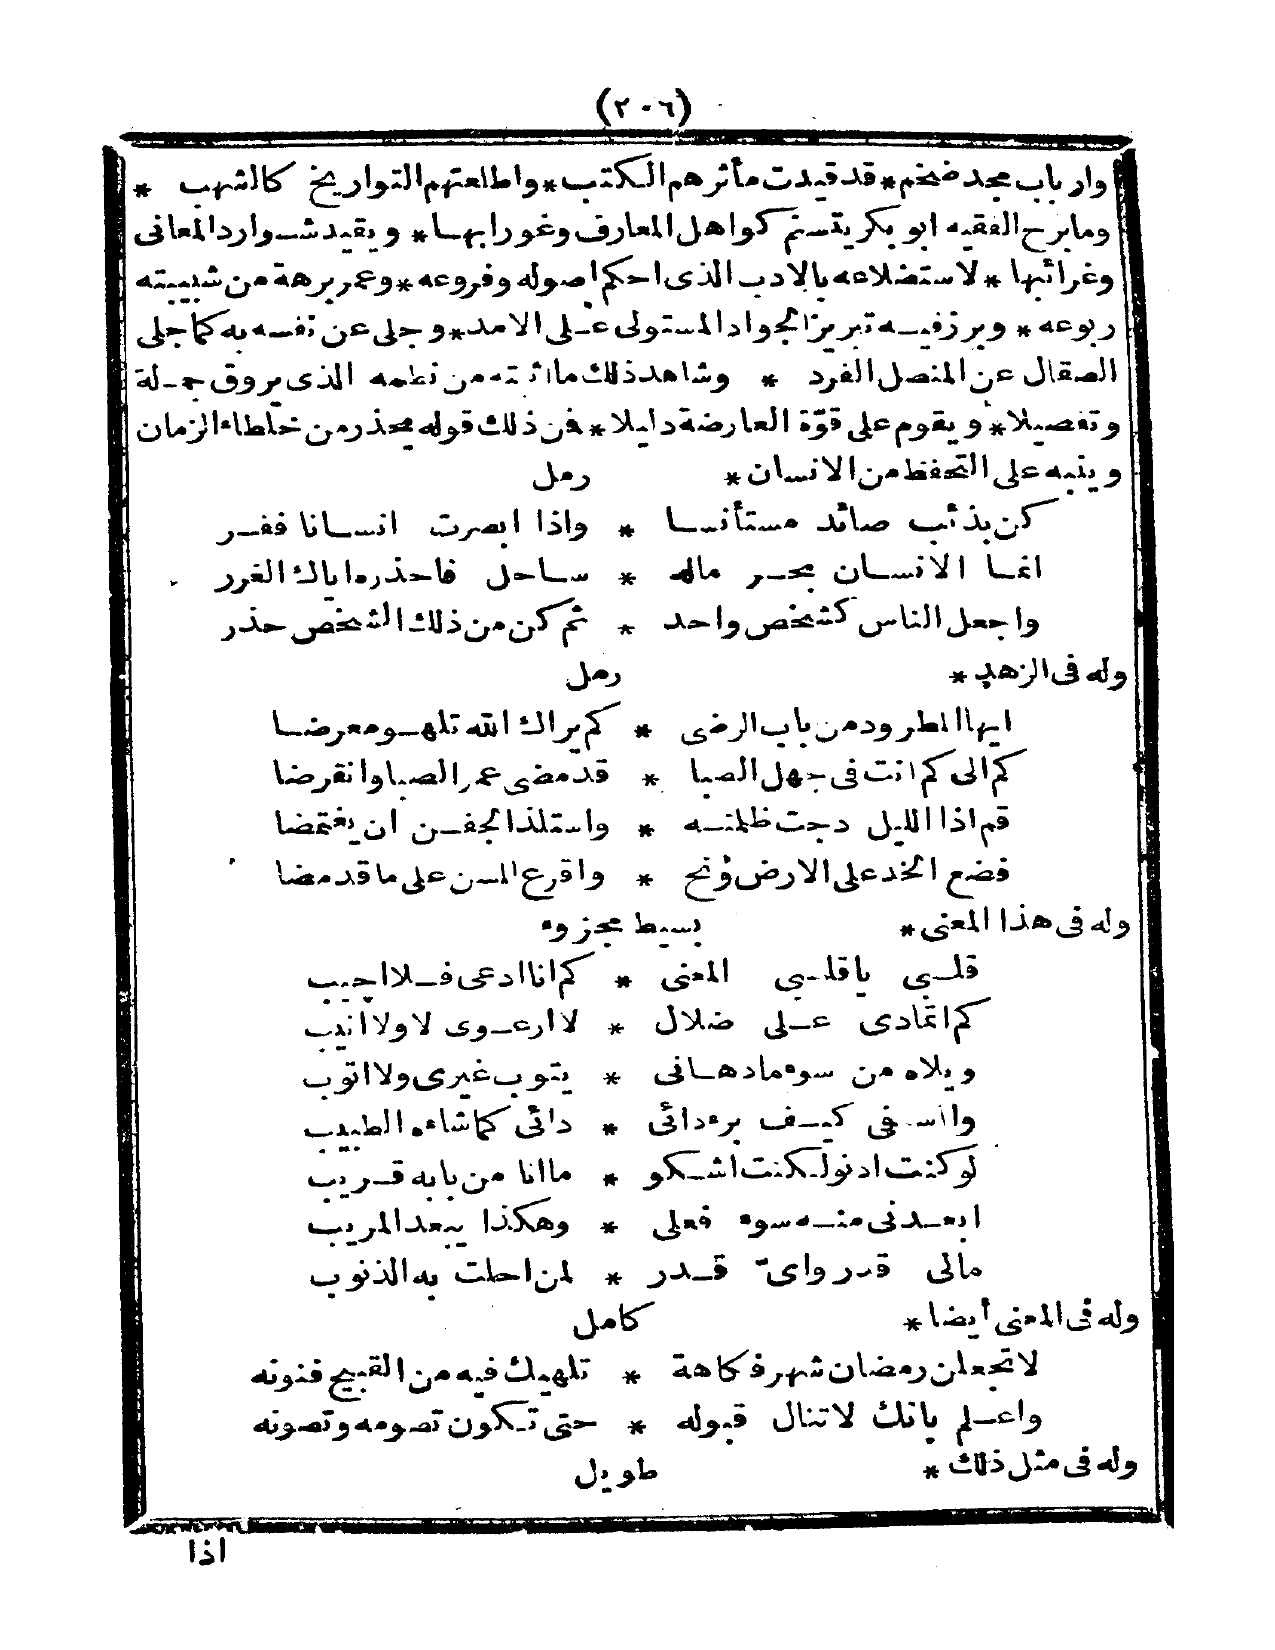 (٢٠٦)
وارباب مجد ضخم * قد قيدت مأثرهم الكتب * واطلعتهم التواريخ كالشهب *
ومابرح الفقيه ابو بكر يتسنم كواهل المعارف وغوراربها * ويقيد شوارد المعانى
وغرائبها * لاستضلاعه بالادب الذى احكم اصوله وفروعه * وعمر برهة من شبيبته
ربوعه * وبرز فيه تبريز الجواد المستولى على الامد * وجلى عن نفسه به كما جلى
الصقال عن المنصل الفرد * وشاهد ذلك ما اثبته من نظمه الذى يروق جملة
وتفصيلا * ويقوم على قوّة العارضة دليلا * فن ذلك قوله يحذر من خلطاء الزمان
وينبه على التحفظ من الانسان * رمل
كن بذئب صائد مستأنسا * واذا ابصرت انسانا ففر
انما الانسان بحر ماله * ساحل فاحذره اياك الغرر
واجعل الناس كشخص واحد * ثم كن من ذلك الشخص حذر
وله فى الزهد * رمل
ايها المطرود من باب الرضى * كم يراك الله تلهو معرضا
كم الى كم انت فى جهل الصبا * قد مضى عمر الصبا وانقرضا
قم اذا الليل دجت ظلمته * واستلذ الجفن ان يغتمضا
فضع الخد على الارض ونح * واقرع السن على ما قد مضا
وله فى هذا المعنى * بسيط مجزوء
قلبى ياقلبى المعنى * كم انا ادعى فلا اجيب
كم اتمادى على ضلال * لا ارعوى لا ولا انيب
ويلاه من سوء مادهانى * يتوب غيرى ولا اتوب
وااسفى كيف برء دائى * دائى كما شاءه الطبيب
لو كنت ادنو لكنت اشكو * ما انا من بابه قريب
ابعدنى منه سوء فعلى * وهكذا يبعد المريب
مالى قدر واىّ قدر * لمن احلت به الذنوب
وله فى المعنى أيضا * كامل
لا تجعلن رمضان شهر فكاهة * تلهيك فيه من القبيح فنونه
واعلم بانك لا تنال قبوله * حتى تكون تصومه وتصونه
وله فى مثل ذلك * طويل
اذا